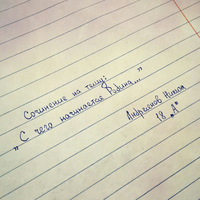 Сочинение на тему:
„С чего начинается Родина..."
Андреянов Никита
18 „А"